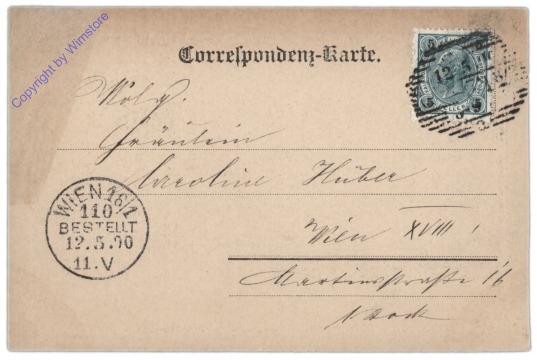 Copyright by Wimstore
Correspondenz-Karte.
5 5
12
Wolg.
Fräulein
Caroline Huber
Wien XVIII
Martinsstraße 16
1 Stock
WIEN 16/1
110
BESTELLT
12.5.90
11.V